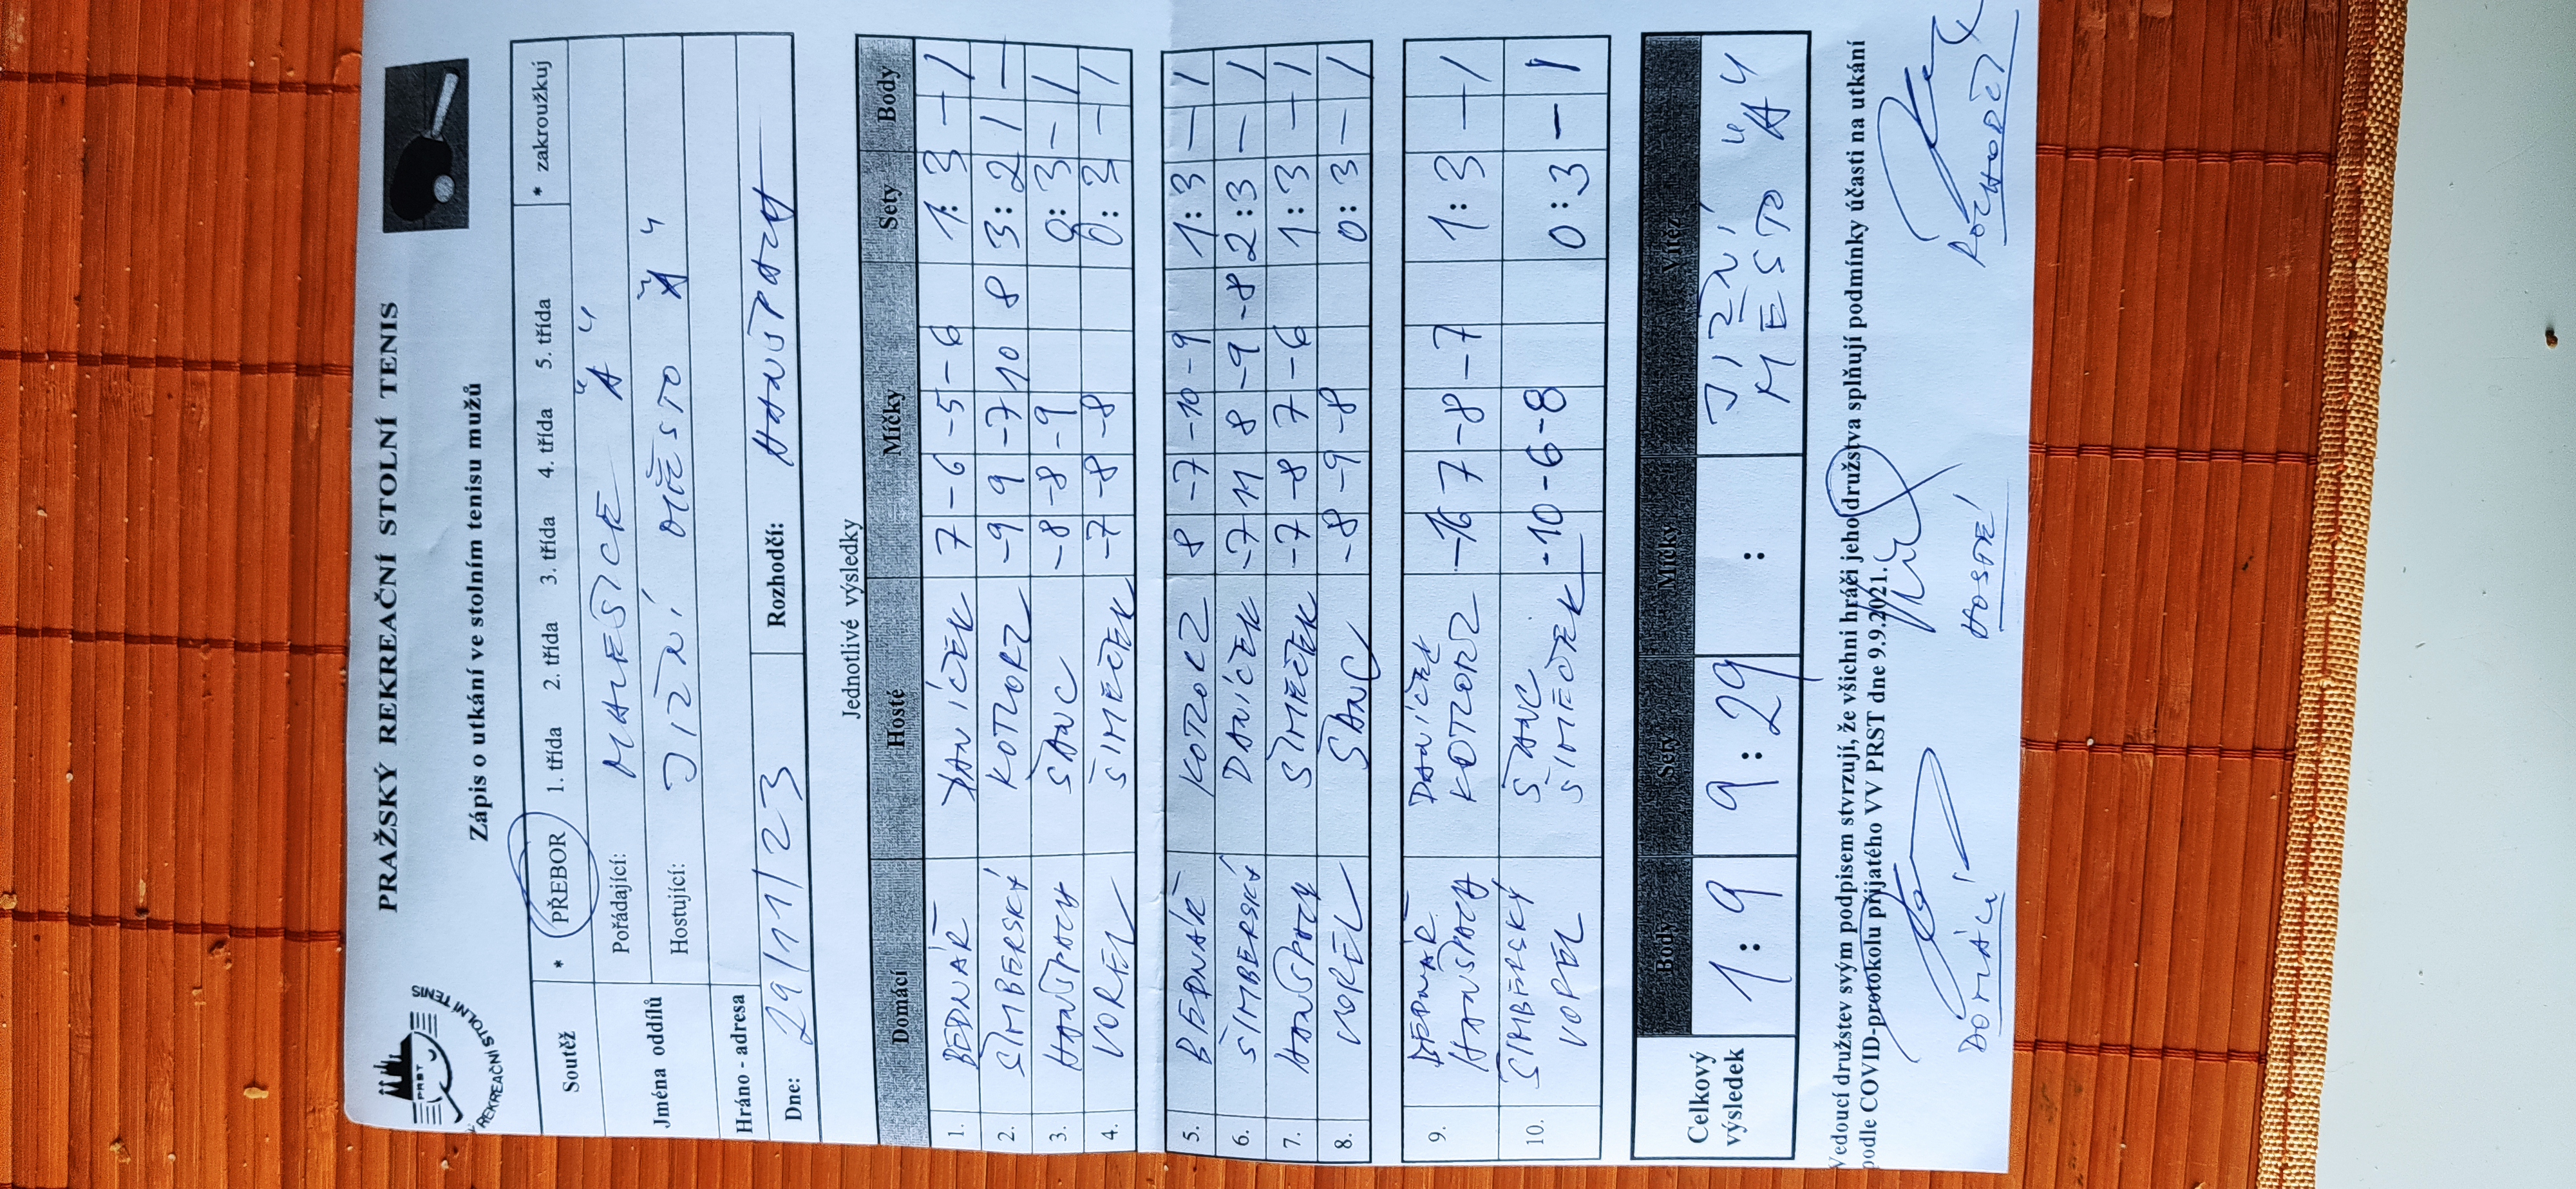 PRAŽSKÝ REKREAČNÍ STOLNÍ TENIS
PRST
REKREAČNÍ STOLNÍ TENIS
Zápis o utkání ve stolním tenisu mužů
Soutěž * PŘEBOR 1. třída 2. třída 3. třída 4. třída 5. třída * zakroužkuj
Jména oddílů
Pořádající: MALEŠICE "A"
Hostující: JIŽNÍ MĚSTO "A"
Hráno - adresa
Dne: 29/11/23 Rozhodčí: HANUŠPACH
Jednotlivé výsledky
Domácí Hosté Míčky Sety Body
1. BEDNÁŘ DANÍČEK 7 -6 -5 -6 1:3 - 1
2. ŠIMBERSKÝ KOTORZ -9 9 -7 10 8 3:2 1 -
3. HANUŠPACH ŠANC -8 -8 -9 0:3 - 1
4. VOREL ŠIMEČEK -7 -8 -8 0:3 - 1
5. BEDNÁŘ KOTORZ 8 -7 -10 -9 1:3 - 1
6. ŠIMBERSKÝ DANÍČEK -7 11 8 -9 -8 2:3 - 1
7. HANUŠPACH ŠIMEČEK -7 -8 7 -6 1:3 - 1
8. VOREL ŠANC -8 -9 -8 0:3 - 1
9. BEDNÁŘ HANUŠPACH DANÍČEK KOTORZ -16 7 -8 -7 1:3 - 1
10. ŠIMBERSKÝ VOREL ŠANC ŠIMEČEK -10 -6 -8 0:3 - 1
Celkový výsledek
Body Sety Míčky Vítěz
1:9 9:29 : JIŽNÍ MĚSTO "A"
Vedoucí družstev svým podpisem stvrzují, že všichni hráči jeho družstva splňují podmínky účasti na utkání
podle COVID-protokolu přijatého VV PRST dne 9.9.2021.
DOMÁCÍ HOSTÉ ROZHODČÍ